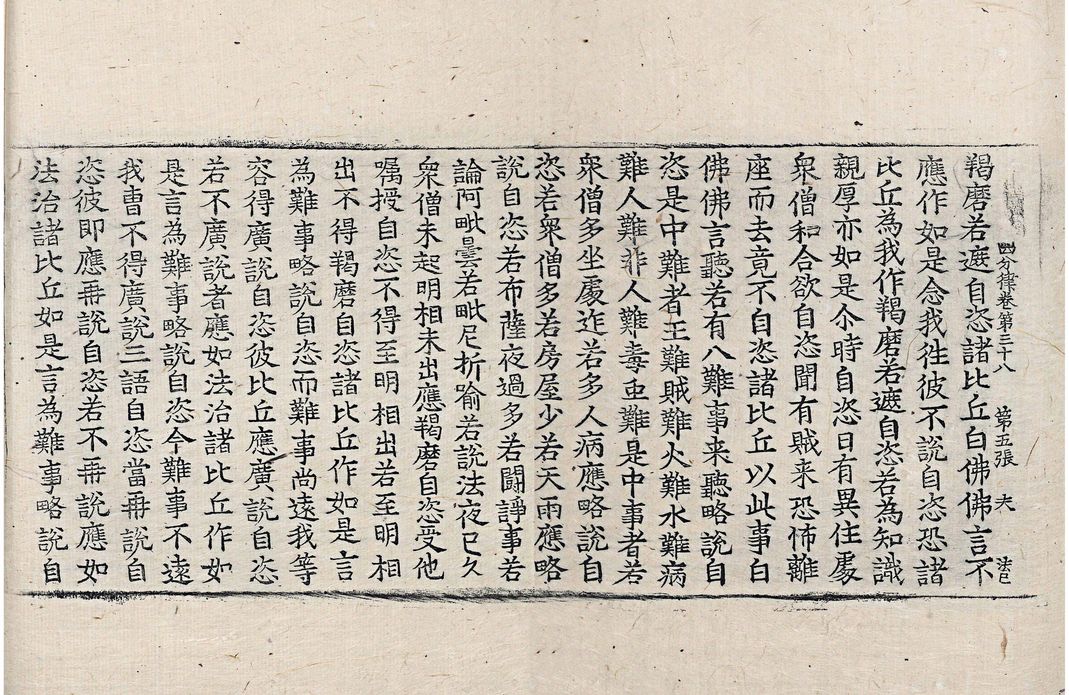 四分律卷第三十八　第五張　夫　法巳
羯磨若遮自恣諸比丘白佛佛言不
應作如是念我徃彼不說自恣恐諸
比丘為我作羯磨若遮自恣若為知識
親厚亦如是尒時自恣日有異住處
衆僧和合欲自恣聞有賊来恐怖離
座而去竟不自恣諸比丘以此事白
佛佛言聽若有八難事来聽略說自
恣是中難者王難賊難火難水難病
難人難非人難毒虫難是中事者若
衆僧多坐處迮若多人病應略說自
恣若衆僧多若房屋少若天雨應略
說自恣若布薩夜過多若鬪諍事若
論阿毗曇若毗尼折喻若說法夜已久
衆僧未起明相未出應羯磨自恣受他
囑授自恣不得至明相出若至明相
出不得羯磨自恣諸比丘作如是言
為難事略說自恣而難事尚遠我等
容得廣說自恣彼比丘應廣說自恣
若不廣說者應如法治諸比丘作如
是言為難事略說自恣今難事不遠
我曹不得廣說三語自恣當再說自
恣彼即應再說自恣若不再說應如
法治諸比丘如是言為難事略說自